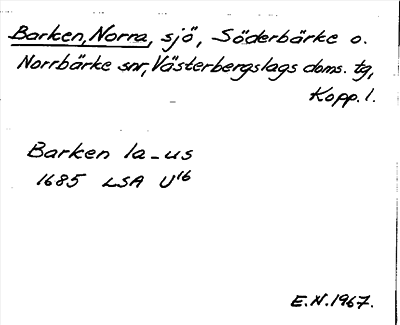 Barken, Norra, sjö, Söderbärke o.
Norrbärke snr, Västerbergslags doms. tg,
Kopp. l.
Barken la-us
1685 LSA U16
E.N. 1967.